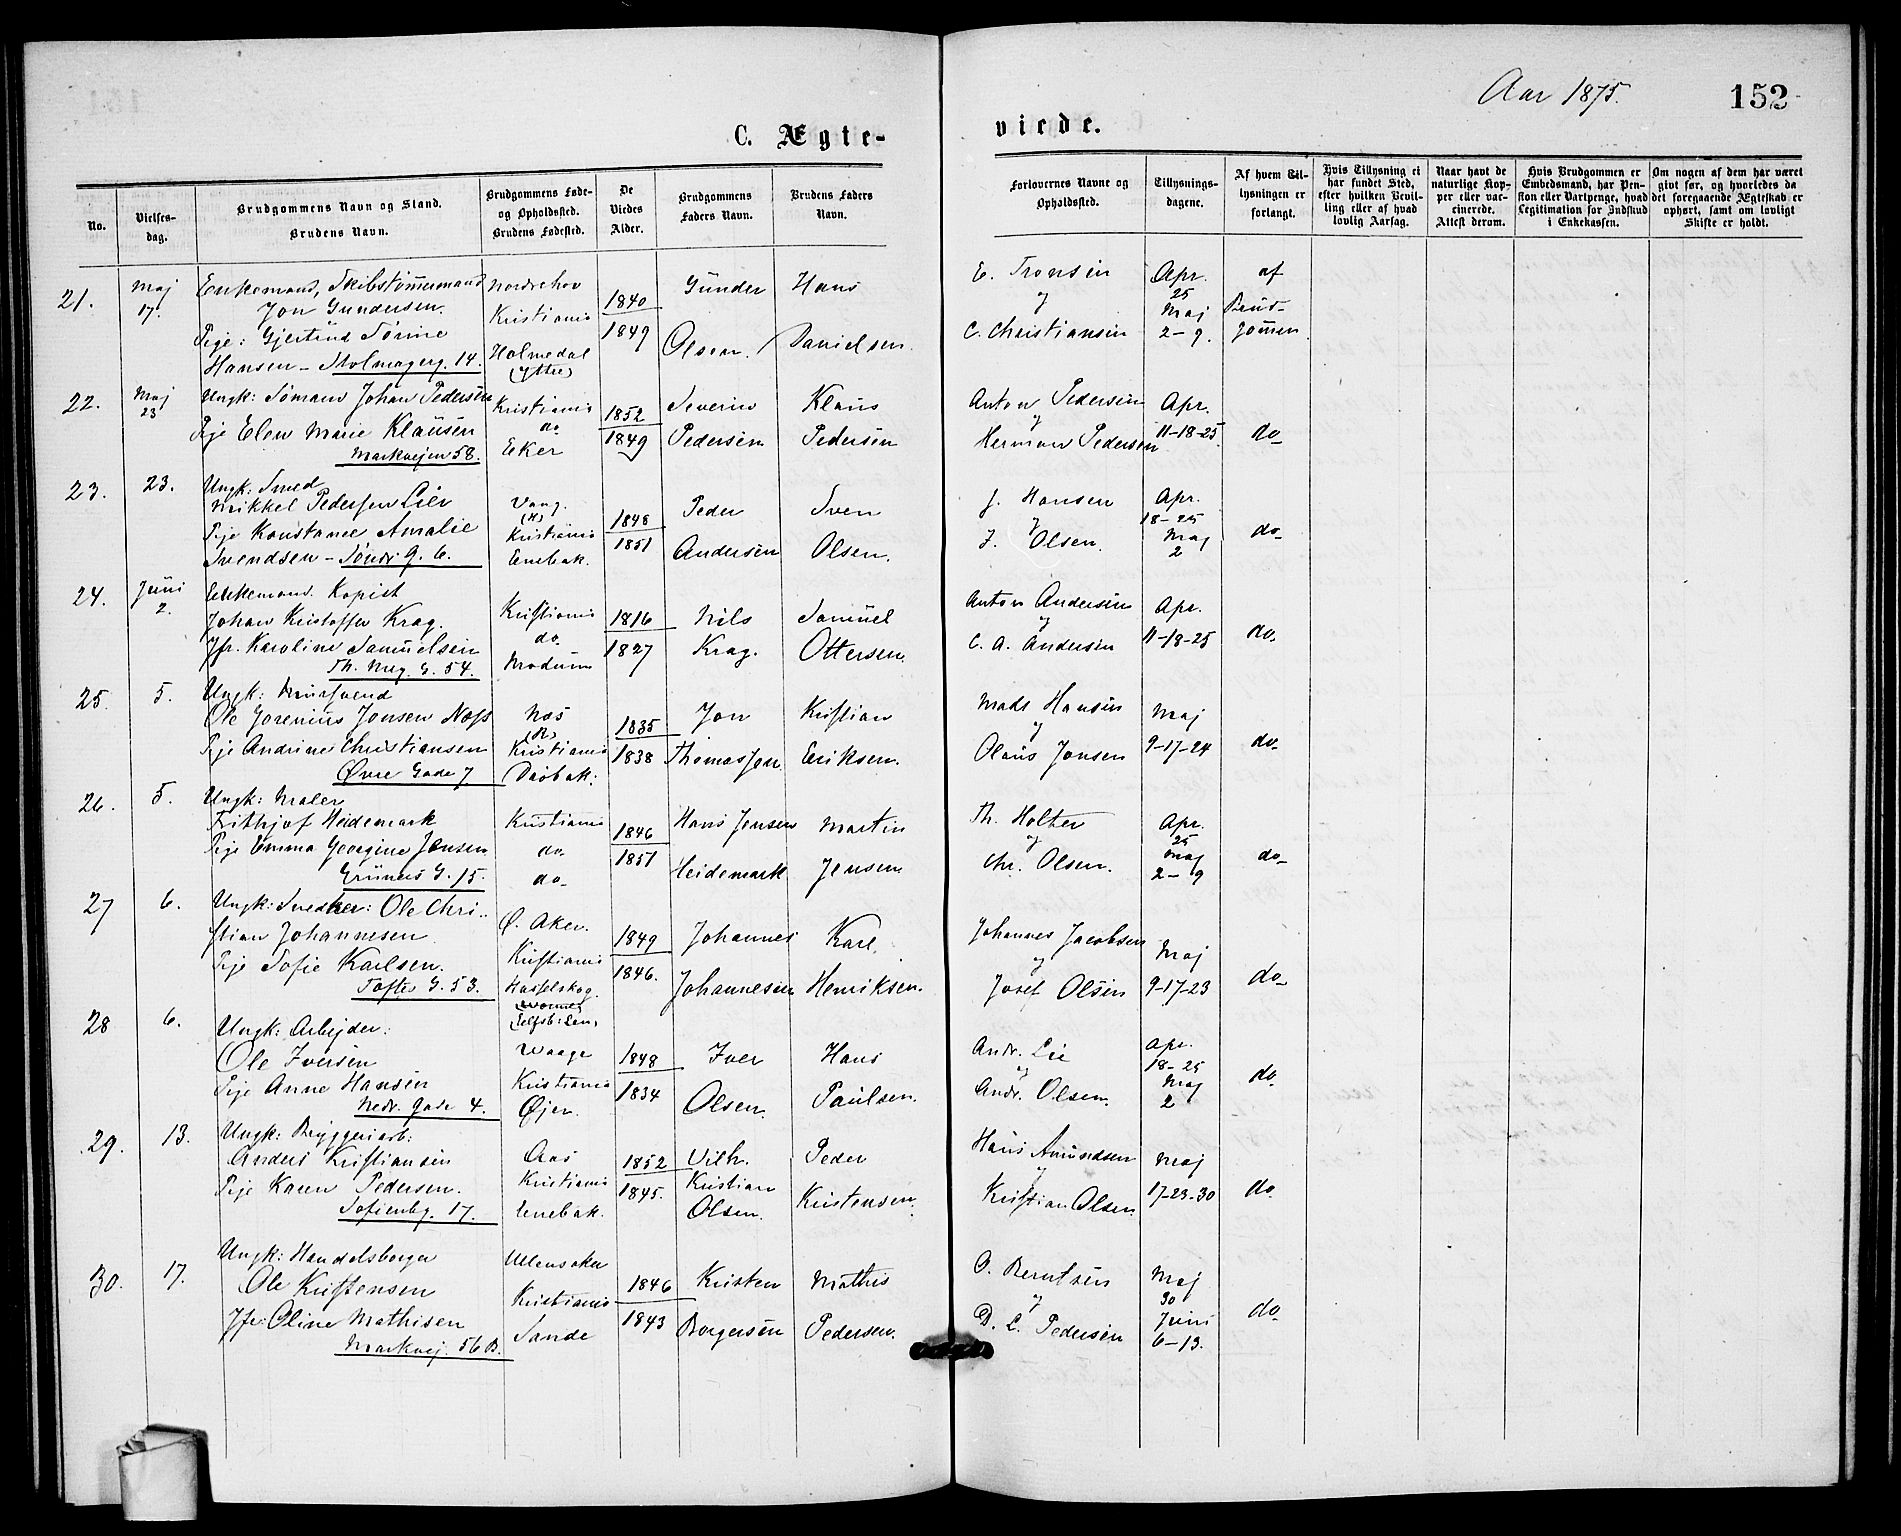 Aar 1875.
152
C. Ægte-
viede.
No.
Vielses-
dag.
Brudgommens Navn og Stand.
Brudens Navn.
Brudgommens Føde-
og Opholdssted.
Brudens Fødested.
De
Viedes
Alder.
Brudgommens
Faders Navn.
Brudens Faders
Navn.
Forlovernes Navne og
Opholdssted.
Tillysnings-
dagene.
Af hvem Til-
lysningen er
forlangt.
Hvis Tillysning ei
har fundet Sted,
efter hvilken Bevil-
ling eller af hvad
lovlig Aarsag.
Naar havt de
naturlige Kop-
per eller vac-
cinerede.
Attest derom.
Hvis Brudgommen er
Embedsmand, har Pen-
sion eller Vartpenge, hvad
Legitimation for Indskud
i Enkekassen.
Om nogen af dem har været
givt før, og hvorledes da
det foregaaende Ægteskab er
ophørt, samt om lovligt
Skifte er holdt.
21.
Maj
17.
Enkemand, Skibstømmermand
Jon Gundersen.
Pige: Gjertrud Sørine
Hansen - Stolmagerg. 14.
Nordrehov
Kristiania
Holmedal
(Ytre)
1840
1849
Gunder
Olsen.
Hans
Danielsen.
E. Tronsen
og
C. Christiansen
Apr.
25
Maj
2-9.
af
Brud-
gommen
22.
Maj
23
Ungk: Sømand Johan Pedersen
Pije Elen Marie Klausen
Markvejen 58.
Kristiania
do
Eker
1852
1849
Severin
Pedersen
Klaus
Pedersen
Anton Pedersen
og
Herman Pedersen
Apr.
11-18-25.
do
23.
23.
Ungk: Smed
Mikkel Pedersen Lien
Pije Konstance Amalie
Svendsen - Søndr. G. 6.
Vang.
(H)
Kristiania
Enebak.
1848
1851
Peder
Andersen
Sven
Olsen.
J. Hansen
og
J. Olsen.
Apr.
18-25
Maj
2
do
24.
Juni
2.
Enkemand. Kopist
Johan Kristoffer Krag.
Jfr. Karoline Samuelsen
Th. Meg. G. 54.
Kristiania
do.
Modum
1816
1827
Nils
Krag.
Samuel
Ottersen.
Anton Andersen
og
C. A. Andersen
Apr.
11-18-25
do.
25.
5.
Ungk: Mursvend
Ole Gorenius Jonsen Næss
Pije Andrine Christiansen
Øvre Gade 7
Næs
(R)
Kristiania
Drøbak.
1835
1838
Jon
Thomassen.
Kristian
Eriksen.
Mads Hansen
og
Olaus Jonsen
Maj
9-17-24
do
26.
5.
Ungk: Maler
Frithjof Heidemark
Pije Emma Georgine Jensen
Grüners G. 15.
Kristiania
do.
do
1846
1851
Hans Jensen
Heidemark
Martin
Jensen
Th. Holter
og
Chr. Olsen.
Apr.
25
Maj
2-9
do
27
6.
Ungk: Snedker: Ole Chri-
stian Johannesen
Pije Sofie Karlsen.
Toftes G. 53.
Ø. Aker.
Kristiania
Hasselskog.
(Elfsb: Len)
1849
1846.
Johannes
Johannesen
Karl
Henriksen.
Johannes Jacobsen
og
Josef Olsen
Maj
9-17-23
do
28
6.
Ungk: Arbejder:
Ole Iversen
Pije Anne Hansen
Nedr. Gade 4.
Waage
Kristiania
Øjer.
1848
1834
Iver
Olsen.
Hans
Paulsen.
Andr. Lie
og
Andr. Olsen.
Apr.
18-25
Maj
2
do
29.
13.
Ungk: Bryggeriarb:
Anders Kristiansen
Pije Karen Pedersen.
Sofienbg. 17.
Aas
Kristiania
Enebak.
1852
1845.
Vilh.
Kristian
Olsen.
Peder
Kristensen.
Hans Amundsen
og
Kristian Olsen.
Maj
17-23-30
do
30.
17.
Ungk: Handelsborger
Ole Kristensen
Jfr: Oline Mathisen
Markvej. 56 B.
Ullensaker
Kristiania
Sande
1846
1843
Kristen
Borgersen
Mathis
Pedersen.
O. Berntsen
og
D. L. Pedersen
Maj
30
Juni
6-13.
do